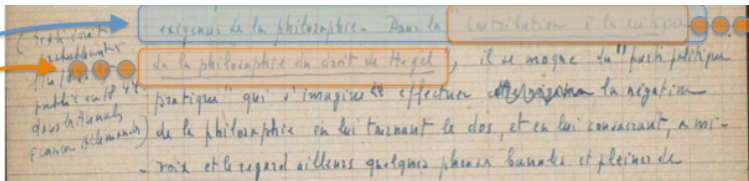 exigences de la philosophie. Dans la "Contribution à la critique
de la philosophie du droit de Hegel", il se moque du "parti politique
pratique" qui s'imagine effectuer la négation
de la philosophie en lui tournant le dos, et en lui consacrant, à mi-
voix et le regard ailleurs quelques phrases banales et pleines de
publié en 1844
dans les Annales